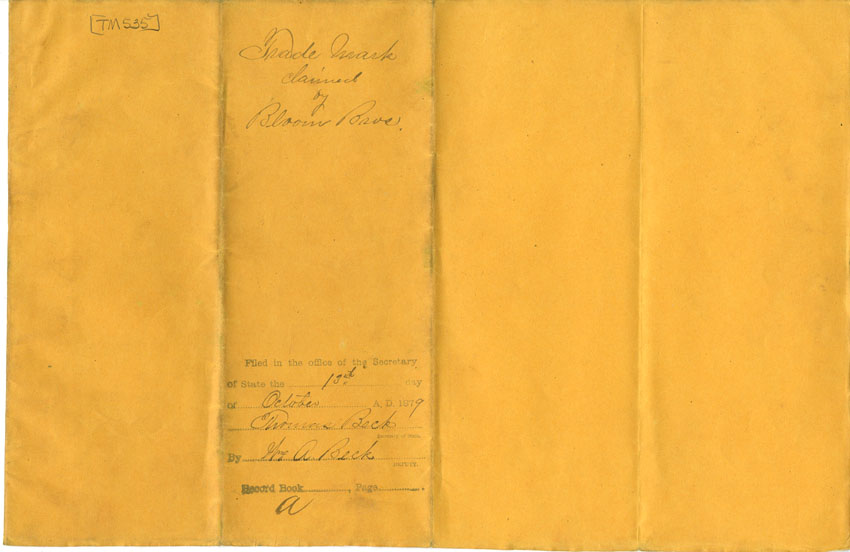 [TM535]
Trade Mark
claimed
by
Bloom Bros.
Filed in the office of the Secretary
of State the 13th day
of October A. D. 1879
Thomas Beck
Secretary of State.
By Wm A Beck
DEPUTY.
Record Book, Page
A